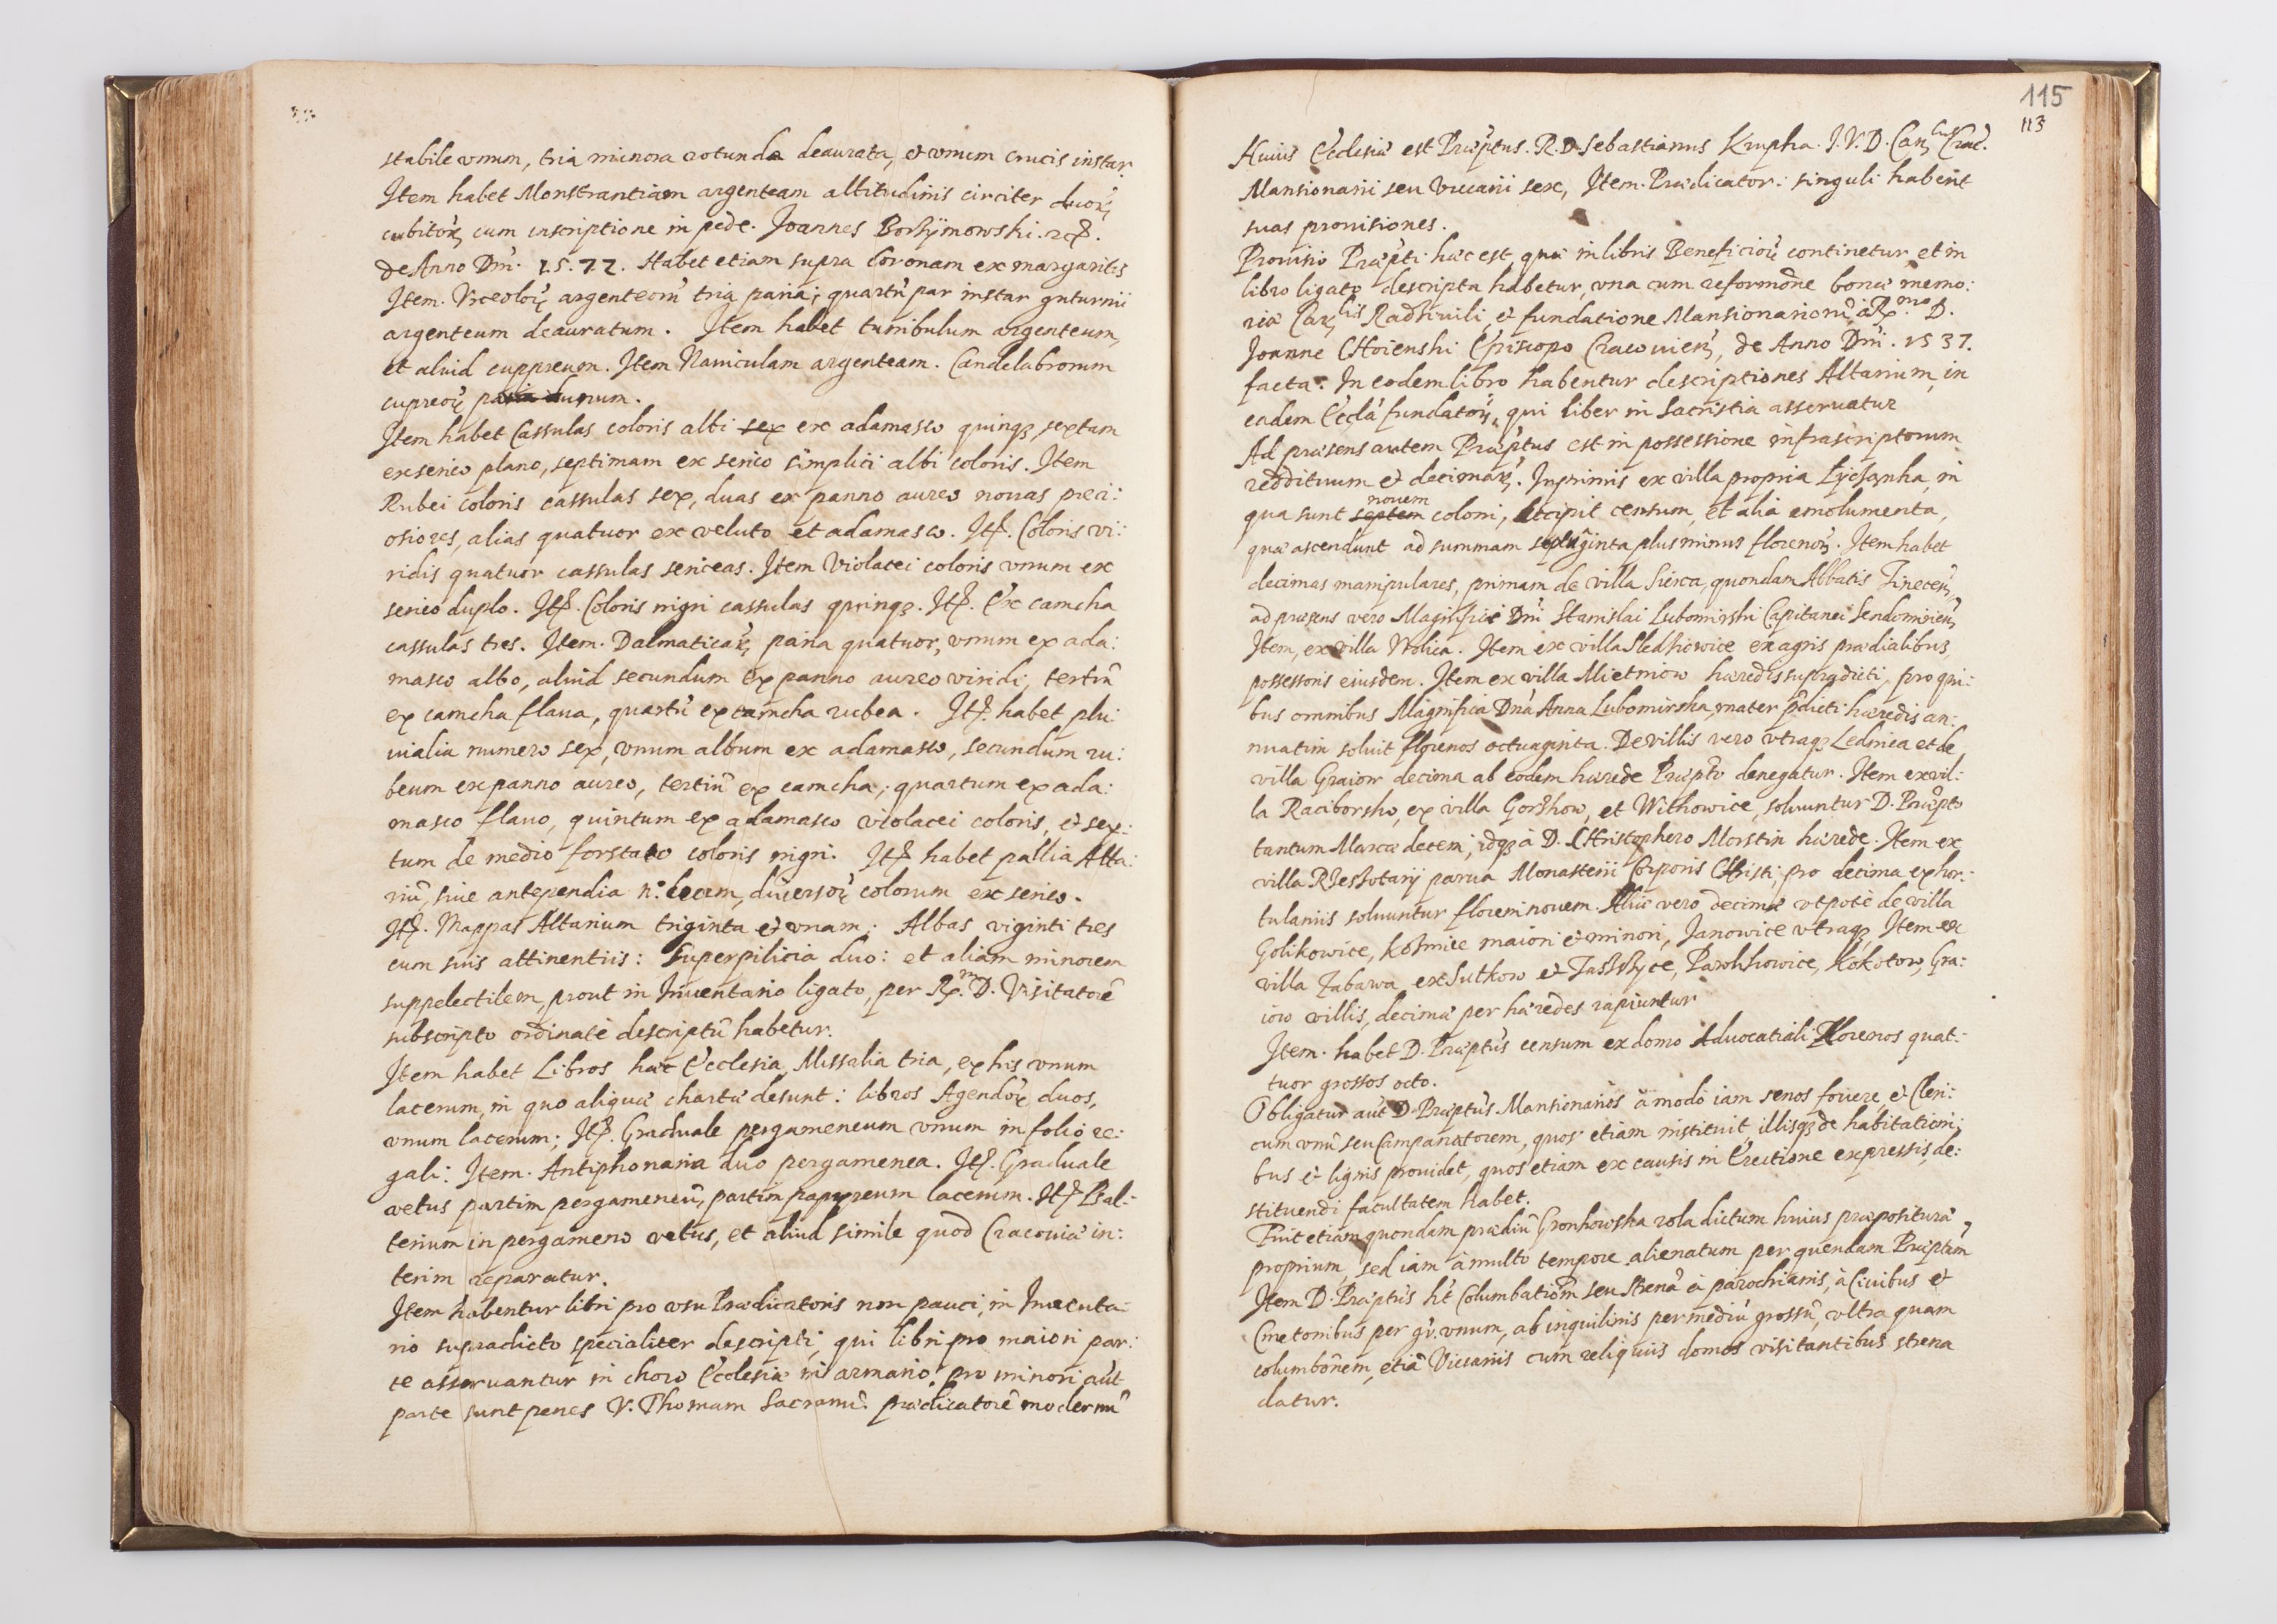 stabile vnum, tria minora rotunda deaurata, et vnum crucis instar.
Item habet Monstrantiam argenteam altitudinis circiter duorũ
cubitorũ cum inscriptione in pede. Joannes
de Anno Dni. 1577. Habet etiam supra Coronam ex margaritis
Item. Vrceolorũ argenteorũ tria paria; quartũ par instar gutturnii
argenteum deauratum. Item habet turribulum argenteum,
et aliud cuppreum. Item Nauiculam argenteam. Candelabrorum
cupreorũ paria vnum.
Item habet Cassulas coloris albi sex ex adamasco quinq3 sextam
ex serico plano, septimam ex serico simplici albi coloris. Item
Rubei coloris cassulas sex, duas ex panno aureo nouas preci:
osiores, alias quatuor ex veluto et adamasco. Itẽ. Coloris vi:
ridis quatuor cassulas sericeas. Item Violacei coloris vnum ex
serico duplo. Itẽ. Coloris nigri cassulas quinq3. Itẽ. Ex camcha
cassulas tres. Item. Dalmaticarũ paria quatuor, vnum ex ada:
masco albo, aliud secundum ex panno aureo viridi, tertiũ
ex camcha flaua, quartũ ex camcha rubea. Itẽ. habet plu:
uialia numero sex, vnum album ex adamasco, secundum ru:
beum ex panno aureo, tertiũ ex camcha, quartum ex ada:
masco flauo, quintum ex adamasco violacei coloris, et sex:
tum de medio forstato coloris nigri. Itẽ habet pallia Alta:
riũ, siue antependia nº. decem, diuersorũ colorum ex serico.
Itẽ. Mappas Altarium triginta et vnam; Albas viginti tres
cum suis attinentiis: Superpilicia duo: et aliam minorem
suppelectilem, prout in Inuentario ligato, per R. D. Visitatorẽ
subscripto ordinatè descriptũ habetur.
Item habet Libros hæc Ecclesia, Missalia tria, ex his vnum
lacerum, in quo aliquæ chartæ desunt: libros Agendorũ duos,
vnum lacerum; Itẽ. Graduale pergameneum vnum in folio re:
gali: Item. Antiphonaria duo pergamenea. Itẽ. Graduale
vetus partim pergameneũ, partim papyreum lacerum. Itẽ Psal:
terium in pergameno vetus, et aliud simile quod Cracouiæ in:
terim reparatur.
Item habentur libri pro vsu Prædicatoris non pauci, in Inuenta:
rio supradicto specialiter descripti, qui libri pro maiori par:
te asseruantur in choro Ecclesiæ in armario, pro minori aũt
parte sunt penes V. Thomam prædicatorẽ modernũ
115
113
Huius Ecclesiæ est Præptus. R. D. Sebastianus Krupka. I. V. D. Can. Crac.
Mansionarii seu Vicarii sex, Item. Prædicator: singuli habent
suas prouisiones.
Prouisio Præpti hæc est, quæ in libris Beneficiorũ continetur et in
libro ligato descripta habetur, vna cum reformõne bonæ memo:
riæ Car.lis Radziuili, et fundatione Mansionariorũ à R.mo D.
Joanne CHoienski Episcopo Cracouieñ, de Anno Dni. 1537.
facta. In eodem libro habentur descriptiones Altarium, in
eadem Ecclã fundatorũ, qui liber in Sacristia asseruatur
Ad præsens autem Præptus est in possessione infrascriptorum
reddituum et decimarũ. Inprimis ex villa propria in
qua sunt septem nouem coloni, accipit censum, et alia emolumenta,
quæ ascendunt ad summam septuaginta plus minus florenorũ. Item habet
decimas manipulares, primam de villa Sierca, quondam Abbatis Tineceñ
ad præsens vero Magnifici Dni Stanislai Lubomirski Capitanei Sendomirieñ
Item, ex villa Wolica. Item ex villa Sledziowice ex agris prædialibus,
possessoris eiusdem. Item ex villa Mietniow hæredis supradicti, pro qui:
bus omnibus Magnifica Dnã Anna Lubomirska, mater p̃dicti hæredis an:
nuatim soluit florenos octuaginta. De villis vero vtraq3 Lednica et de
villa Graiow decima ab eodem hærede Præpto denegatur. Item ex vil:
la Raciborsko, ex villa Gorzkow, et Witkowice, soluuntur D. Præpto
tantum Marcæ decem, idq3 à D. CHristophero Morstin hærede. Item ex
villa parua Monasterii Corporis CHristi, pro decima ex hor:
tulaniis soluuntur floreni nouem. Aliæ vero decimæ vtpotè de villa
Golikowice, Kozmice maiori et minori, Janowice vtraq3, Item ex
villa Zabawa ex Sutkow et Taszyce, Pawlikowice, Kokotow, Gra:
iow villis, decimæ per hæredes rapiuntur
Item. habet D. Præptus censum ex domo Aduocatiali Florenos quat:
tuor grossos octo.
Obligatur aũt D. Præptus Mansionarios ãmodo iam senos fouere, et Cleri:
cum vnũ seu Campanatorem, quos etiam instituit, illisq3 de habitationi:
bus et lignis prouidet, quos etiam ex causis in Erectione expressis, de:
stituendi facultatem habet.
Fuit etiam quondam prædiũ Gronkowska rola dictum huius præposituræ
proprium, sed iam à multo tempore alienatum per quendam Præptum
Item D. Præptus hẽt Columbatiõm seu strenã à parochianis, à Ciuibus et
Cmetonibus per gr. vnum, ab inquilinis per mediũ grossũ, vltra quam
columbõnem, etiã Vicariis cum reliquiis domos visitantibus strena
datur.